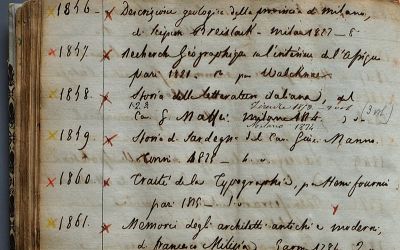 1856. Descrizione geologica della provincia di Milano,
di Scipion Breislak - milan 1822 - 8°
1857. Recherch Géographiq sur l'intérieur de l'Afrique
par 1821 - 8° par Walcknaer
1858. Storia della letteratura italiana, del
1 2 3
Cav. G. Maffei milano 1824 (3 vol.)
Milano 1824
1859. Storia di Sardegna del Cav. Gius. Manno.
Torin 1825 - 4 v.
1860. Traité de la Typographie, par Henri fournier
par 1825 1 v.
1861. Memorie degli architetti antichi e moderni,
di francesco Milizia Parm 1781 2